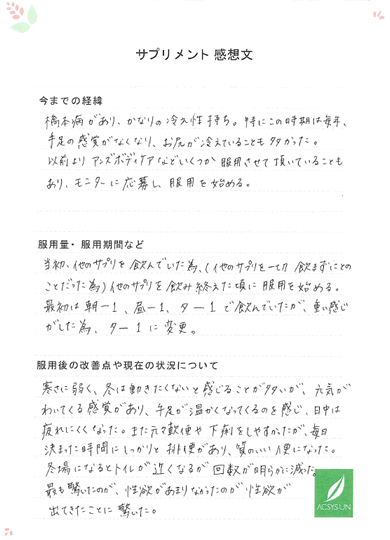 サプリメント 感想文
今までの経緯
橋本病があり、かなりの冷え性持ち。特にこの時期は毎年、
手足の感覚がなくなり、お尻が冷えていることも多かった。
以前より アンズボディケアなどいくつか服用させて頂いていることも
あり、モニターに応募し、服用を始める。
服用量・服用期間など
当初、他のサプリを飲んでいた為、(他のサプリを一切飲まずにとの
ことだった為)他のサプリを飲み終えた頃に服用を始める。
最初は朝ー1、昼ー1、夕ー1で飲んでいたが、重い感じ
がした為、夕ー1に変更。
服用後の改善点や現在の状況について
寒さに弱く、冬は動きたくないと感じることが多いが、元気が
わいてくる感覚があり、手足が温かくなってくるのを感じ、日中は
疲れにくくなった。また元々軟便や下痢をしやすかったが、毎日
決まった時間にしっかりと排便があり、質のいい便になった。
冬場になるとトイレが近くなるが回数が明らかに減った。
最も驚いたのが、性欲があまりなかったのが性欲が
出てきたことに驚いた。
ACSYS UN